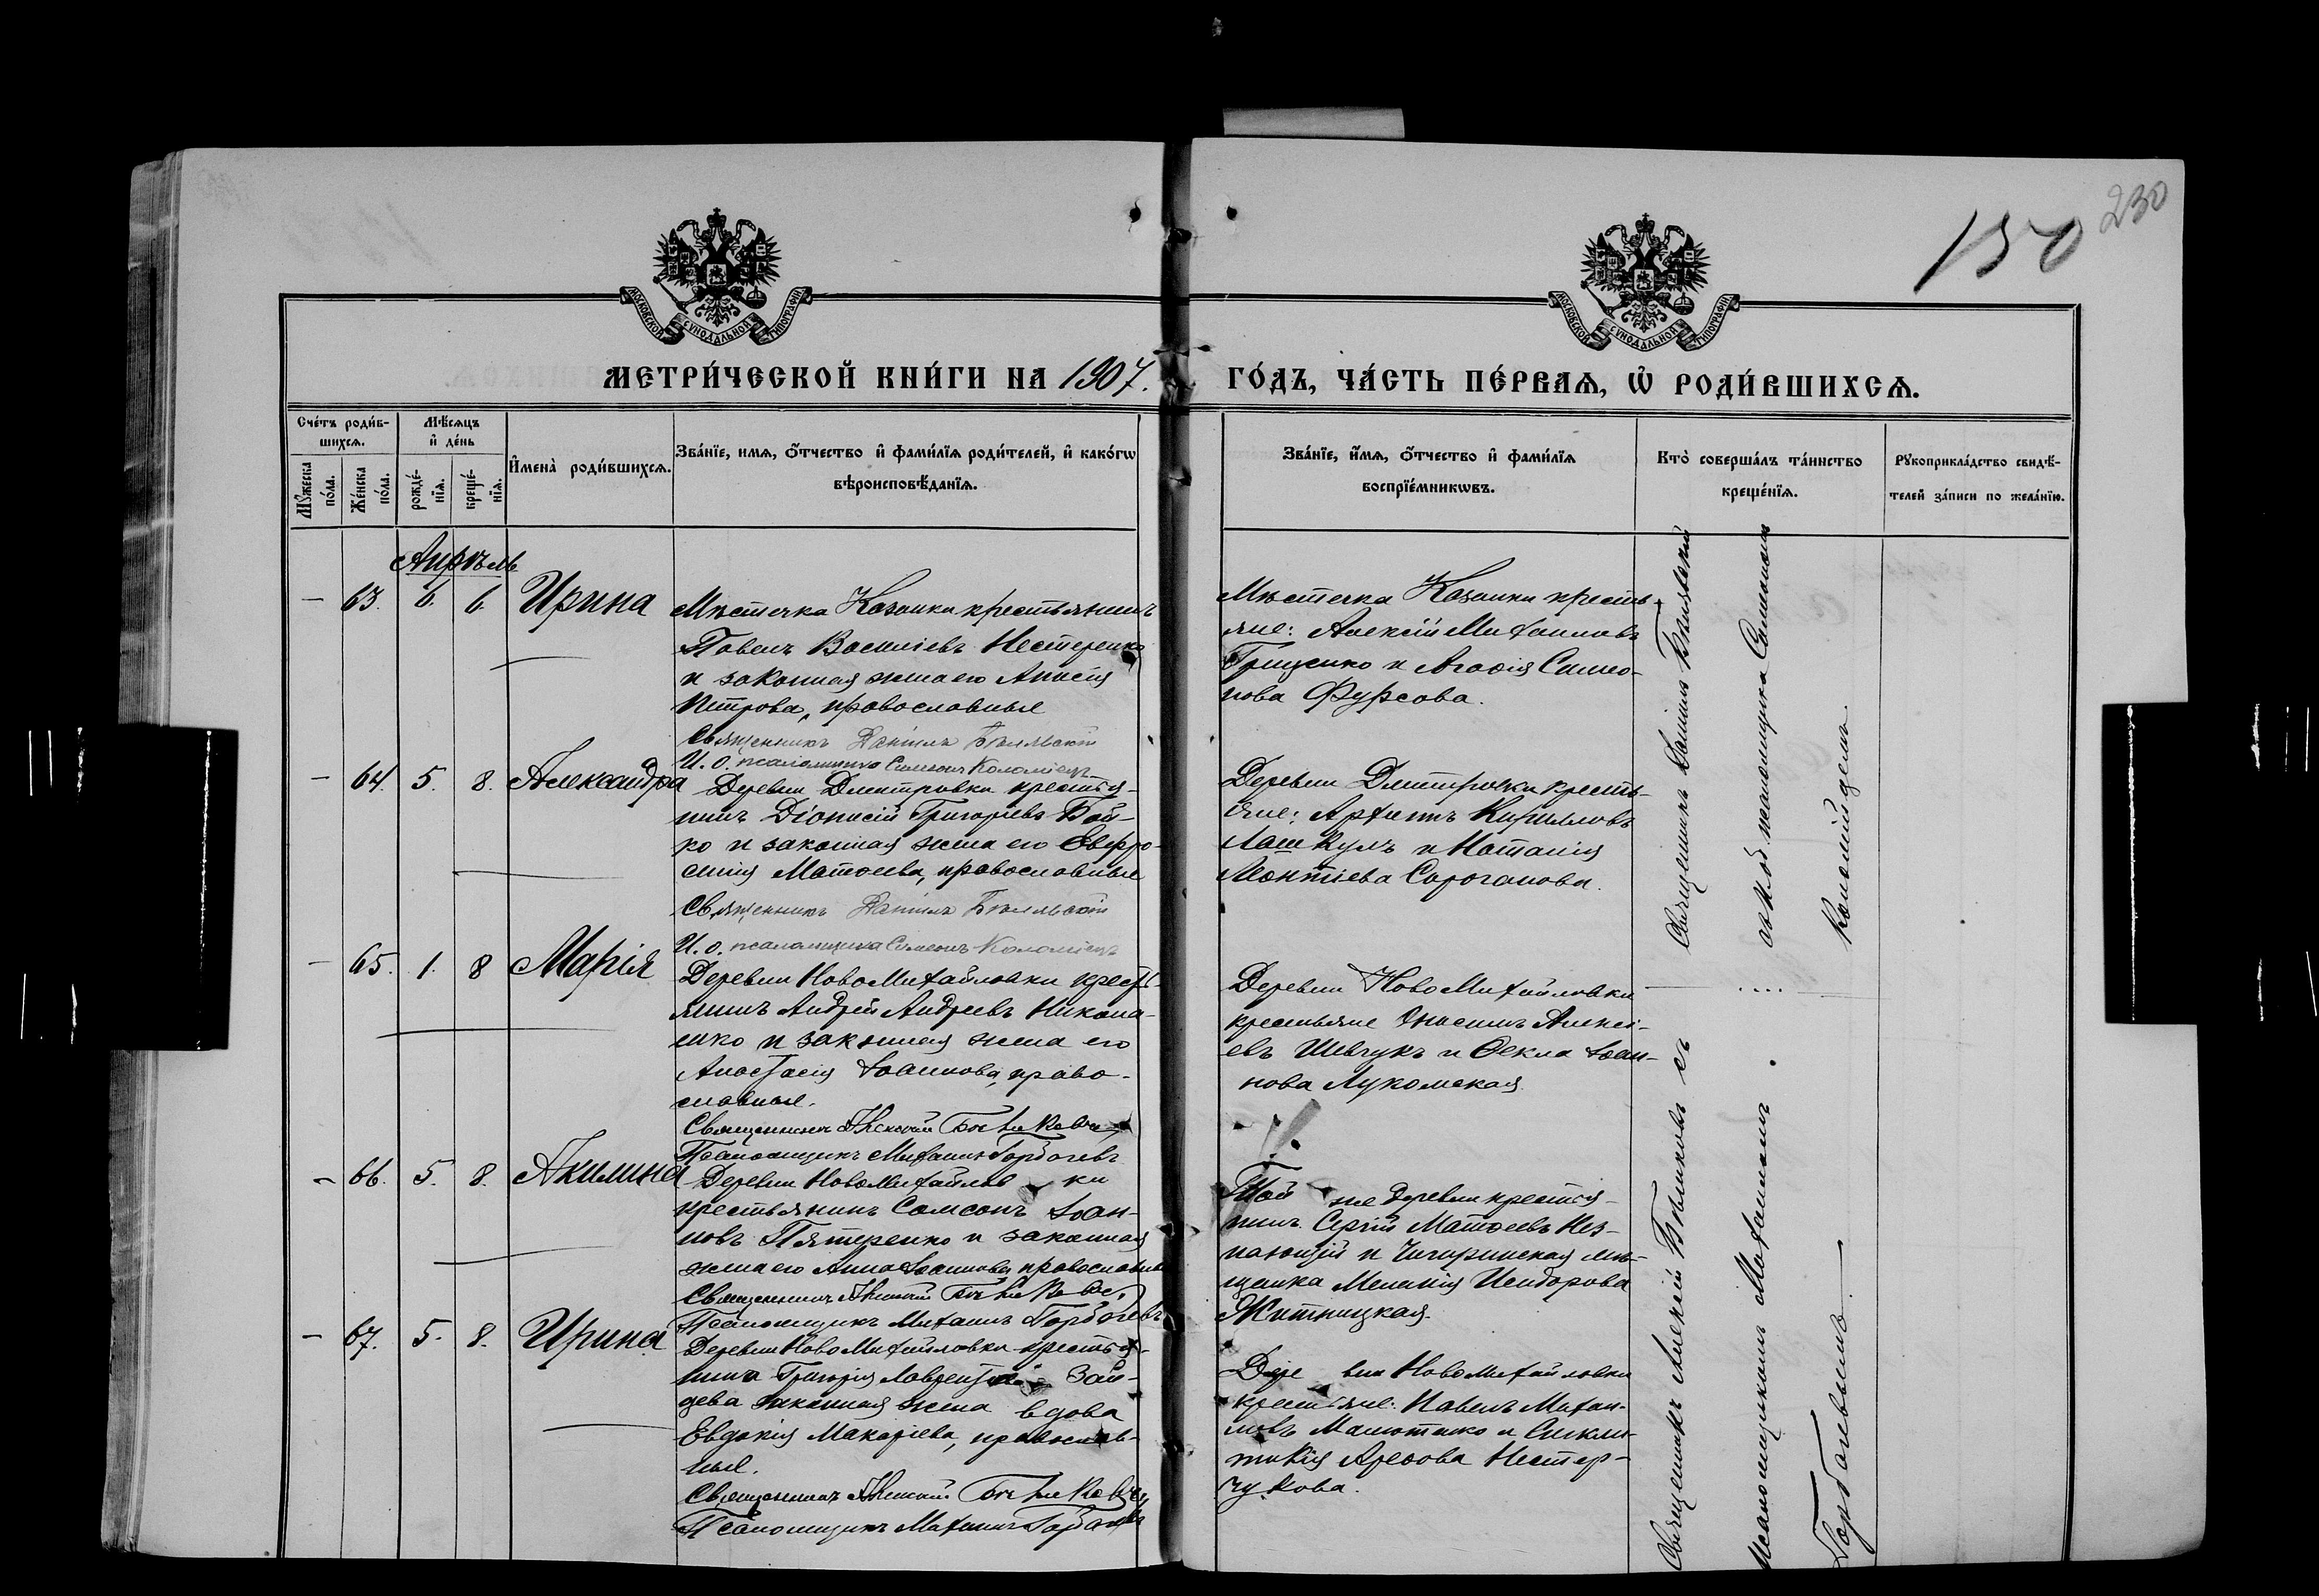 230
150
МОСКОВСКОЙ СѴНОДАЛЬНОЙ ТИПОГРАФІИ
МОСКОВСКОЙ СѴНОДАЛЬНОЙ ТИПОГРАФІИ
МЕТРИ́ЧЕСКОЙ КНИ́ГИ НА 1907. ГО́ДЪ, ЧА́СТЬ ПЕ́РВАѦ, Ѽ РОДИ́ВШИХСѦ.
Сче́тъ роди́в-
шихсѧ.
Мꙋ́жеска
по́ла.
Же́нска
по́ла.
Мѣ́сѧцъ
и҆ де́нь
рожде́-
нїѧ.
креще́-
нїѧ.
И҆мена̀ роди́вшихсѧ.
Зва́нїе, имѧ, ѻ҆́тчество и҆ фами́лїѧ роди́телей, и҆ како́гѡ
вѣроисповѣ́данїѧ.
Зва́нїе, и҆́мѧ, ѻ҆́тчество и҆ фами́лїѧ
воспрїе́мникѡвъ.
Кто̀ соверша́лъ та́инство
креще́нїѧ.
Рꙋкоприкла́дство свидѣ́-
телей за́писи по жела́нїю.
Апрѣль
— 63. 6. 6. Ирина
Мѣстечка Казанки крестьянинъ
Павелъ Василіевъ Нестеренко
и законная жена его Анисія
Петрова, православные
Священникъ Даніилъ Бѣльскій
И. о. псаломщика Симеонъ Коломіецъ
Мѣстечка Казанки кресть-
яне: Алексій Михаиловъ
Гриценко и Агафія Симео-
нова Фурсова.
— 64. 5. 8. Александра
Деревни Дмитровки крестья-
нинъ Діонисій Григоріевъ Бой-
ко и законная жена его Евфро-
синія Матѳеева, православные
Священникъ Даніилъ Бѣльскій
И. о. псаломщика Симеонъ Коломіецъ
Деревни Дмитровки кресть-
яне: Архипъ Кирилловъ
Лашкулъ и Наталія
Леонтіева Сороганова.
— 65. 1. 8 Марія
Деревни НовоМихайловки кресть-
янинъ Андрей Андреевъ Никола-
енко и законная жена его
Анастасія Іоаннова, право-
славные.
Священникъ Алексій
Псаломщикъ Михаилъ Горбачевъ
Деревни НовоМихайловки
крестьяне Онисимъ Алексі-
евъ Шевчукъ и Ѳекла Іоан-
нова Лукомская
— 66. 5. 8. Акилина
Деревни НовоМихайловки
крестьянинъ Самсонъ Іоан-
новъ Пятеренко и законная
жена его Анна Іоаннова, православные
Священникъ Алексій
Псаломщикъ Михаилъ Горбачевъ
Той же деревни крестья-
нинъ Сергій Матѳеевъ Нез-
нающій и Чигиринская мѣ-
щанка Меланія Исидорова
Житницкая.
— 67. 5. 8. Ирина
Деревни НовоМихайловки крестья-
нина Григорія Зай-
цева законная жена вдова
Евдокія Макаріева, православ-
ные.
Священникъ Алексій
Псаломщикъ Михаилъ Горбачевъ
Деревни НовоМихайловки
крестьяне: Павелъ Михаи-
ловъ Малютенко и Синкли-
тикія Арефова Нестер-
чукова.
Священникъ Даніилъ Бѣльскій
съ и. об. псаломщика Симеономъ
Коломійцемъ.
Священникъ Алексій съ
псаломщикомъ Михаиломъ
Горбачевымъ